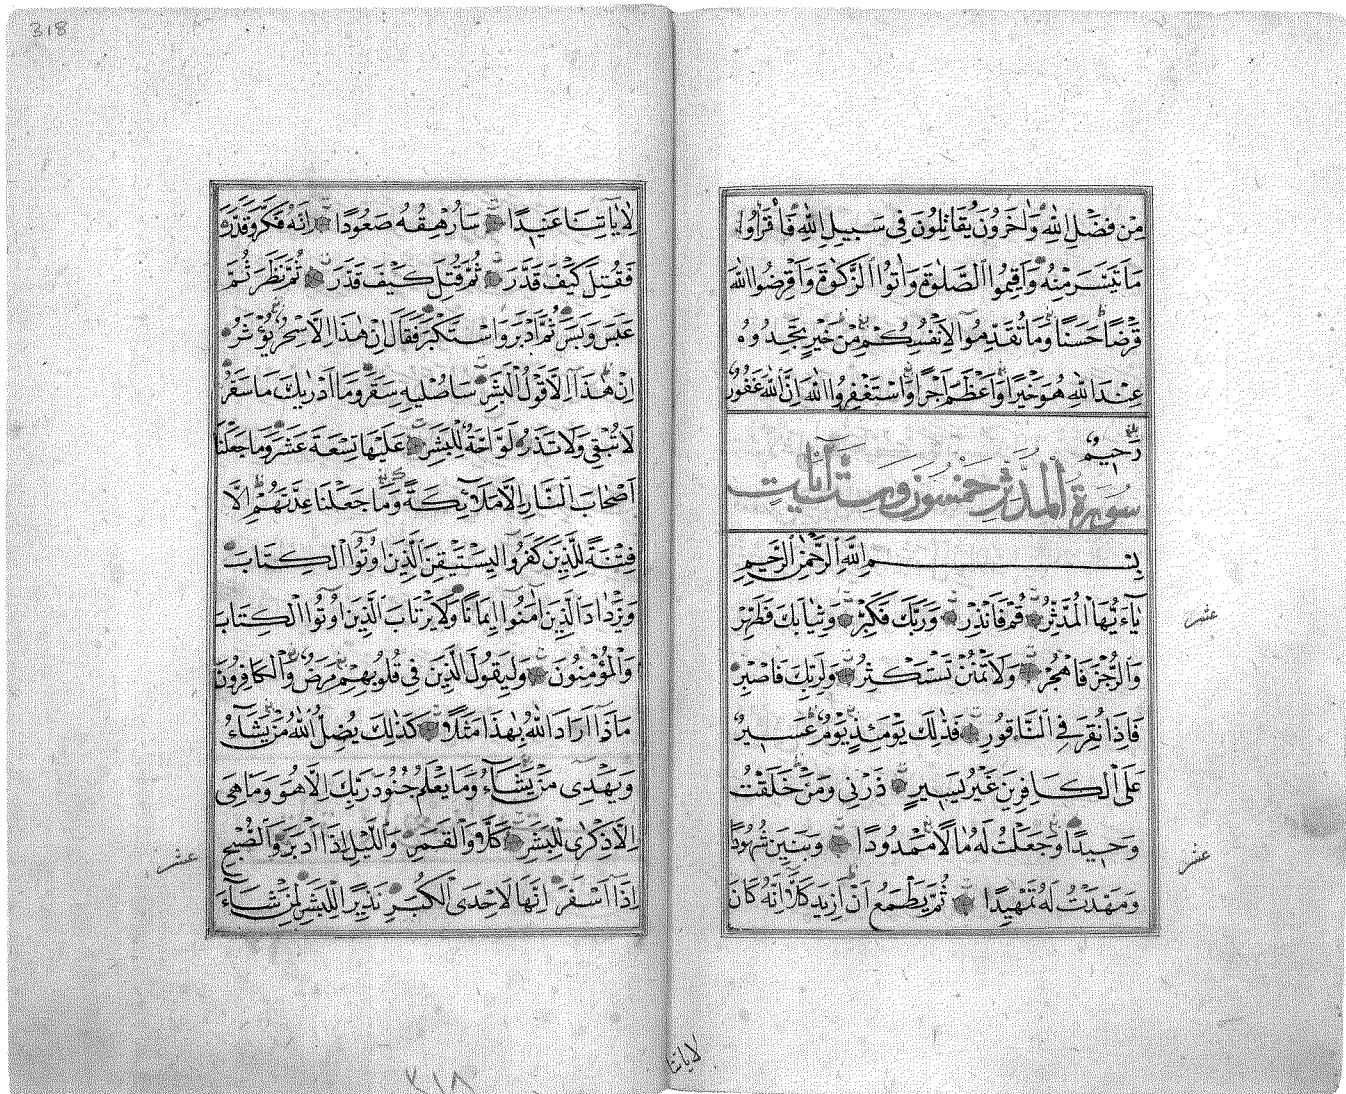 مِنْ فَضْلِ اللّٰهِ وَاٰخَرُونَ يُقَاتِلُونَ فِى سَبِيلِ اللّٰهِ فَاقْرَاُوا
مَا تَيَسَّرَ مِنْهُ وَاَقِيمُوا الصَّلٰوةَ وَاٰتُوا الزَّكٰوةَ وَاَقْرِضُوا اللّٰهَ
قَرْضًا حَسَنًا وَمَا تُقَدِّمُوا لِاَنْفُسِكُمْ مِنْ خَيْرٍ تَجِدُوهُ
عِنْدَ اللّٰهِ هُوَ خَيْرًا وَاَعْظَمَ اَجْرًا وَاسْتَغْفِرُوا اللّٰهَ اِنَّ اللّٰهَ غَفُورٌ
رَحِيمٌ
سُورَةُ الْمُدَّثِّرِ خَمْسُونَ وَسِتُّ اٰيَاتٍ
بِسْمِ اللّٰهِ الرَّحْمٰنِ الرَّحِيمِ
يَاءَيُّهَا الْمُدَّثِّرُ قُمْ فَاَنْذِرْ وَرَبَّكَ فَكَبِّرْ وَثِيَابَكَ فَطَهِّرْ
عشر
وَالرُّجْزَ فَاهْجُرْ وَلَا تَمْنُنْ تَسْتَكْثِرُ وَلِرَبِّكَ فَاصْبِرْ
فَاِذَا نُقِرَ فِى النَّاقُورِ فَذٰلِكَ يَوْمَئِذٍ يَوْمٌ عَسِيرٌ
عَلَى الْكَافِرِينَ غَيْرُ يَسِيرٍ ذَرْنِى وَمَنْ خَلَقْتُ
وَحِيدًا وَجَعَلْتُ لَهُ مَالًا مَمْدُودًا وَبَنِينَ شُهُودًا
عشر
وَمَهَّدْتُ لَهُ تَمْهِيدًا ثُمَّ يَطْمَعُ اَنْ اَزِيدَ كَلَّا اِنَّهُ كَانَ
لاياتنا
318
لِاٰيَاتِنَا عَنِيدًا سَاُرْهِقُهُ صَعُودًا اِنَّهُ فَكَّرَ وَقَدَّرَ
فَقُتِلَ كَيْفَ قَدَّرَ ثُمَّ قُتِلَ كَيْفَ قَدَّرَ ثُمَّ نَظَرَ ثُمَّ
عَبَسَ وَبَسَرَ ثُمَّ اَدْبَرَ وَاسْتَكْبَرَ فَقَالَ اِنْ هٰذَا اِلَّا سِحْرٌ يُؤْثَرُ
اِنْ هٰذَا اِلَّا قَوْلُ الْبَشَرِ سَاُصْلِيهِ سَقَرَ وَمَا اَدْرٰيكَ مَا سَقَرُ
لَا تُبْقِى وَلَا تَذَرُ لَوَّاحَةٌ لِلْبَشَرِ عَلَيْهَا تِسْعَةَ عَشَرَ وَمَا جَعَلْنَا
اَصْحَابَ النَّارِ اِلَّا مَلَائِكَةً وَمَا جَعَلْنَا عِدَّتَهُمْ اِلَّا
فِتْنَةً لِلَّذِينَ كَفَرُوا لِيَسْتَيْقِنَ الَّذِينَ اُوتُوا الْكِتَابَ
وَيَزْدَادَ الَّذِينَ اٰمَنُوا اِيمَانًا وَلَا يَرْتَابَ الَّذِينَ اُوتُوا الْكِتَابَ
وَالْمُؤْمِنُونَ وَلِيَقُولَ الَّذِينَ فِى قُلُوبِهِمْ مَرَضٌ وَالْكَافِرُونَ
مَاذَا اَرَادَ اللّٰهُ بِهٰذَا مَثَلًا كَذٰلِكَ يُضِلُّ اللّٰهُ مَنْ يَشَاءُ
وَيَهْدِى مَنْ يَشَاءُ وَمَا يَعْلَمُ جُنُودَ رَبِّكَ اِلَّا هُوَ وَمَا هِىَ
اِلَّا ذِكْرٰى لِلْبَشَرِ كَلَّا وَالْقَمَرِ وَالَّيْلِ اِذْ اَدْبَرَ وَالصُّبْحِ
عشر
اِذَا اَسْفَرَ اِنَّهَا لَاِحْدَى الْكُبَرِ نَذِيرًا لِلْبَشَرِ لِمَنْ شَاءَ
٣١٨